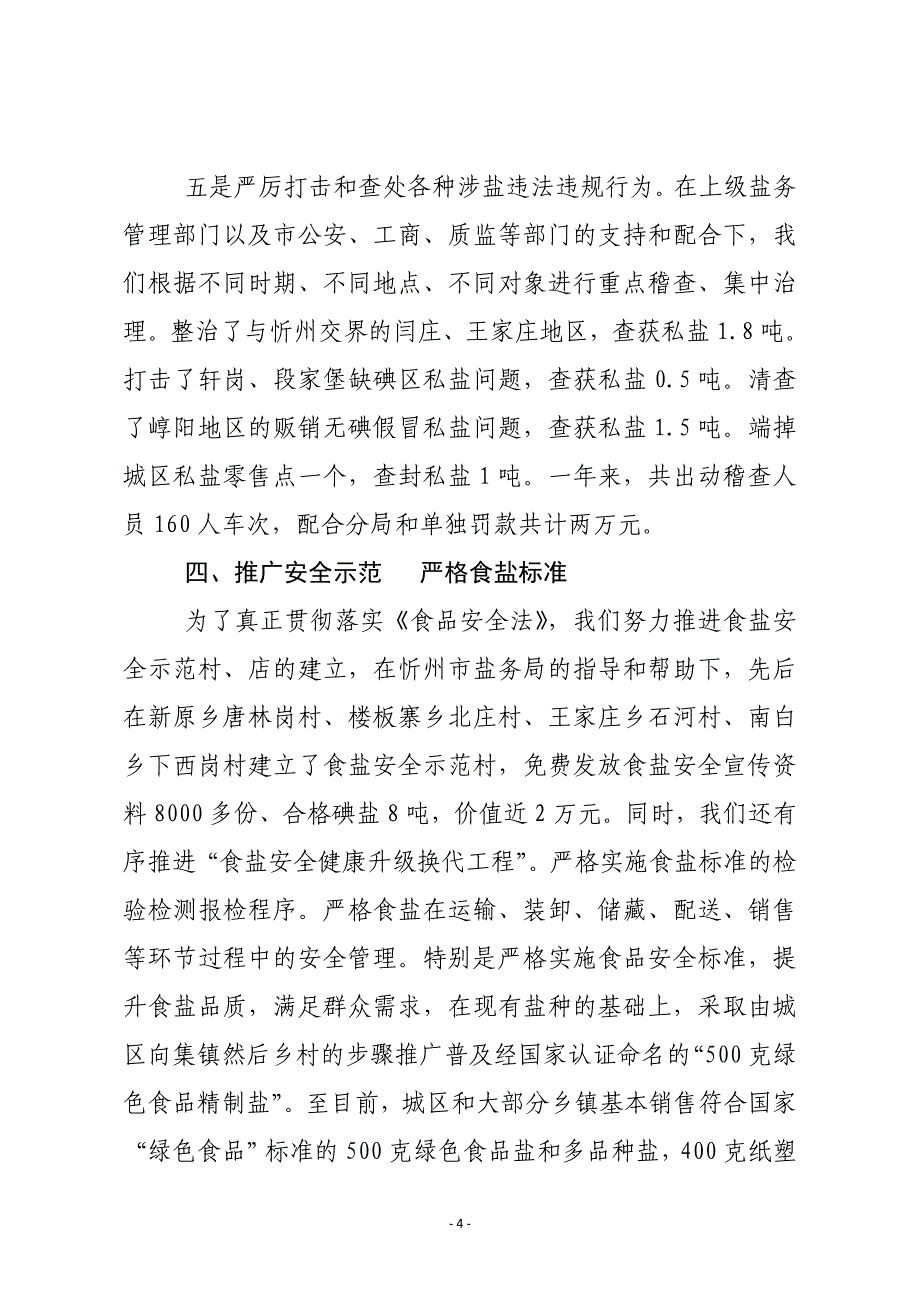 五是严厉打击和查处各种涉盐违法违规行为。在上级盐务
管理部门以及市公安、工商、质监等部门的支持和配合下，我
们根据不同时期、不同地点、不同对象进行重点稽查、集中治
理。整治了与忻州交界的闫庄、王家庄地区，查获私盐 1.8 吨。
打击了轩岗、段家堡缺碘区私盐问题，查获私盐 0.5 吨。清查
了崞阳地区的贩销无碘假冒私盐问题，查获私盐 1.5 吨。端掉
城区私盐零售点一个，查封私盐 1 吨。一年来，共出动稽查人
员 160 人车次，配合分局和单独罚款共计两万元。
四、推广安全示范 严格食盐标准
为了真正贯彻落实《食品安全法》，我们努力推进食盐安
全示范村、店的建立，在忻州市盐务局的指导和帮助下，先后
在新原乡唐林岗村、楼板寨乡北庄村、王家庄乡石河村、南白
乡下西岗村建立了食盐安全示范村，免费发放食盐安全宣传资
料 8000 多份、合格碘盐 8 吨，价值近 2 万元。同时，我们还有
序推进“食盐安全健康升级换代工程”。严格实施食盐标准的检
验检测报检程序。严格食盐在运输、装卸、储藏、配送、销售
等环节过程中的安全管理。特别是严格实施食品安全标准，提
升食盐品质，满足群众需求，在现有盐种的基础上，采取由城
区向集镇然后乡村的步骤推广普及经国家认证命名的“500 克绿
色食品精制盐”。至目前，城区和大部分乡镇基本销售符合国家
“绿色食品”标准的 500 克绿色食品盐和多品种盐，400 克纸塑
- 4 -